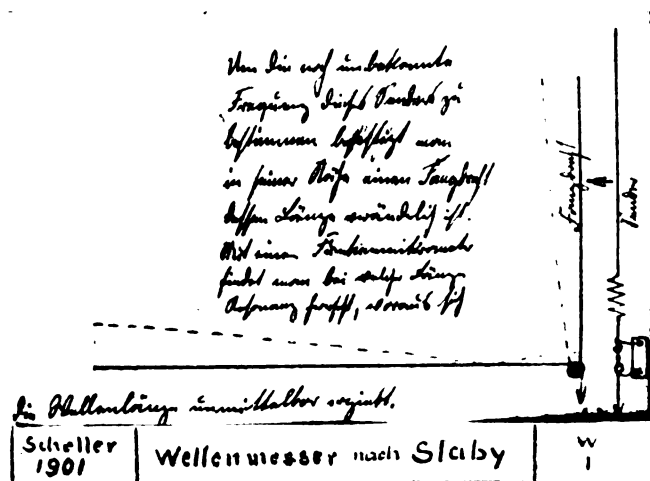 Um die noch unbekannte
Frequenz dieses Senders zu
bestimmen befestigt man
in seiner Nähe einen Fangdraht
dessen Länge verändelich ist.
Mit einem Funkenmikrometer
findet man bei welcher Länge
Resonanz herrscht, woraus sich
die Wellenlänge unmittelbar ergiebt.
Fangdraht
Sender
Scheller
1901
Wellenmesser nach Slaby
W
1